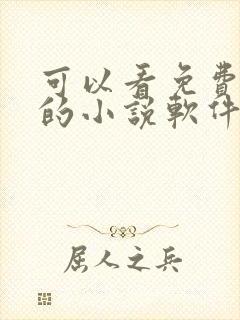 可以看免費
的小說軟件
屈人之兵